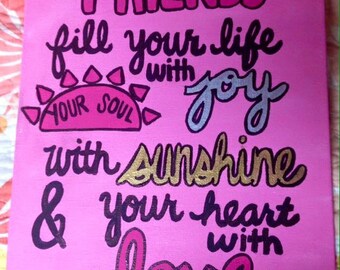 FRIENDS
fill your life
with joy
YOUR SOUL
with sunshine
& your heart
with
love